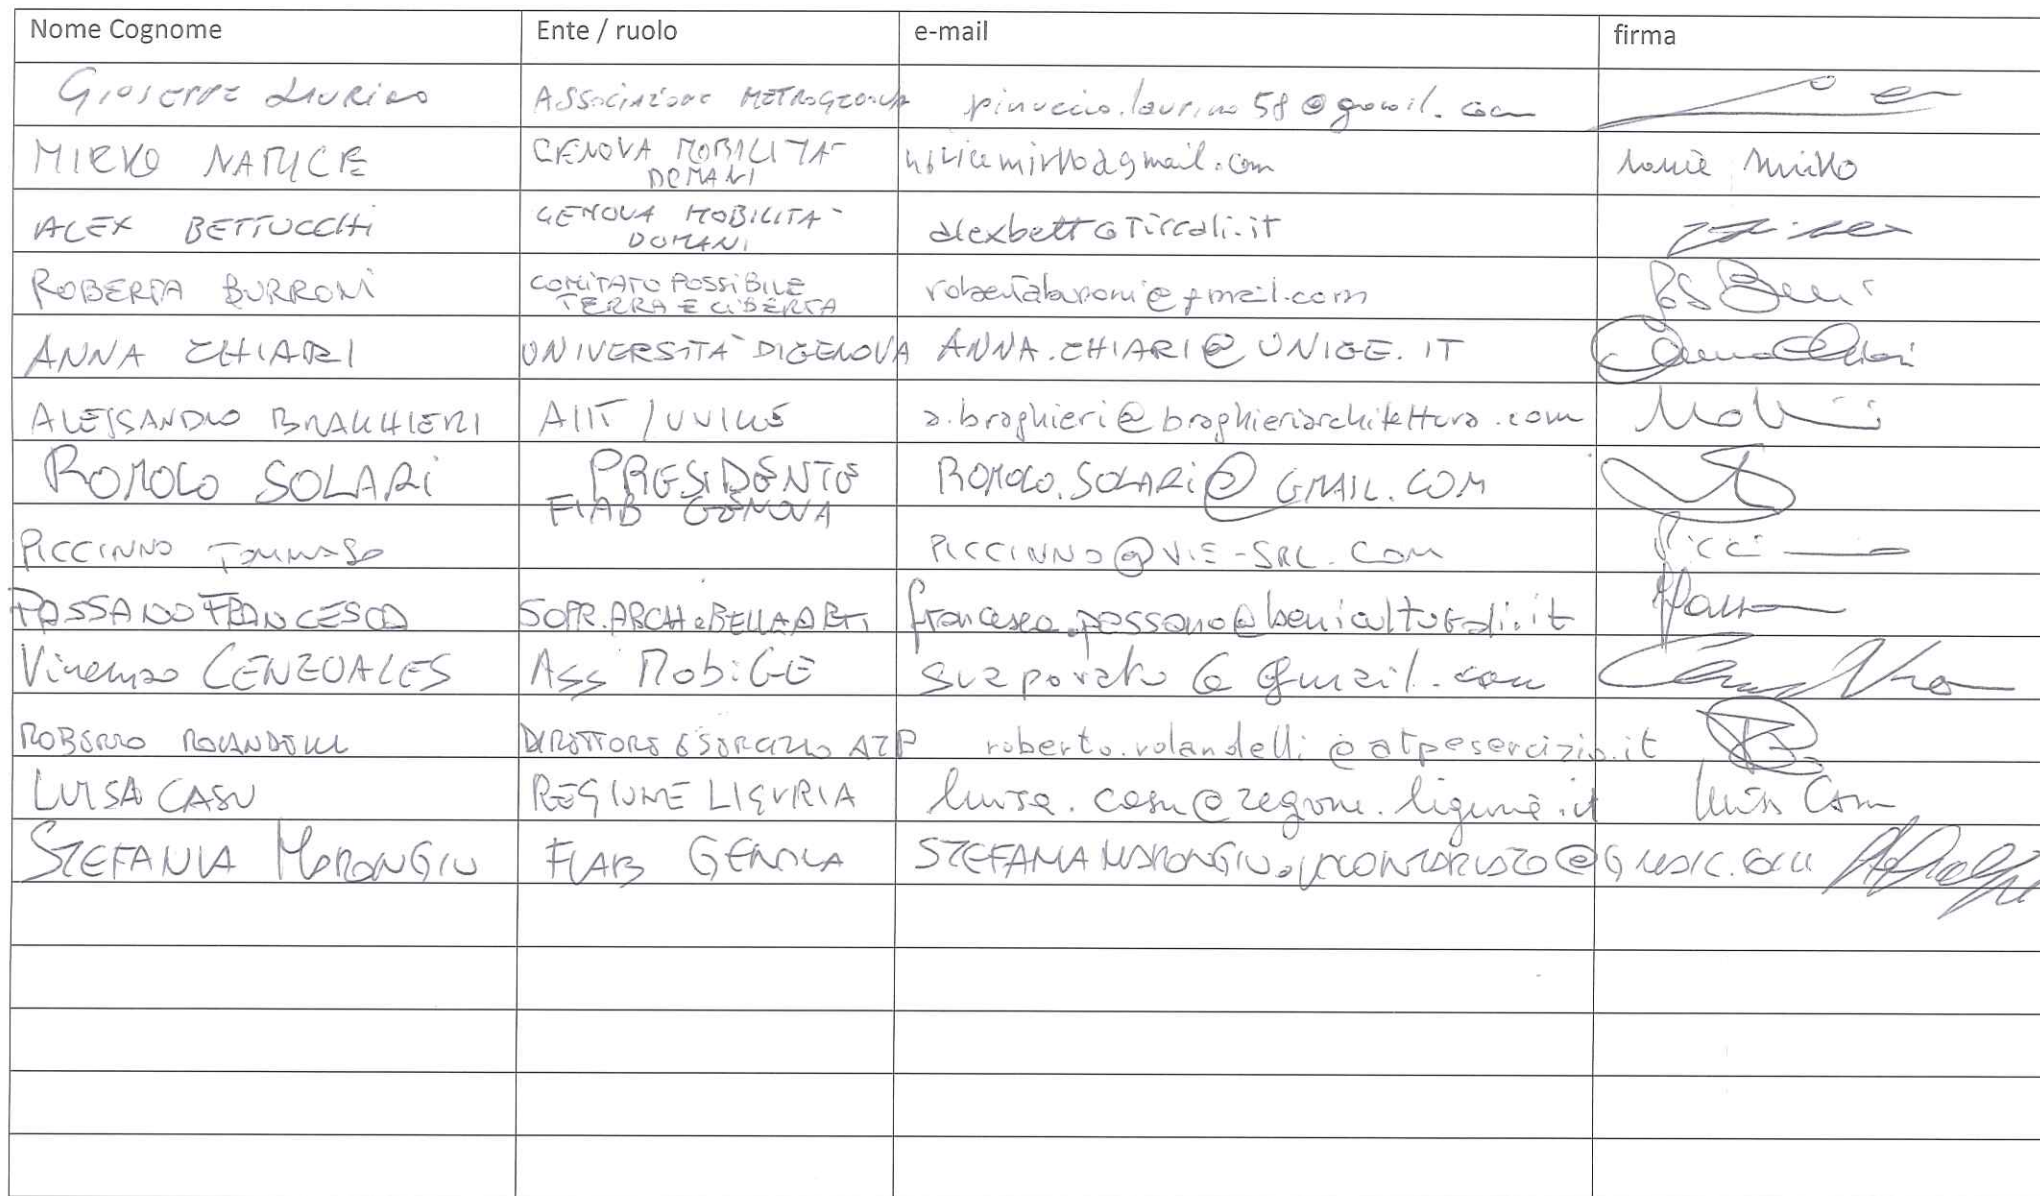 Nome Cognome Ente / ruolo e-mail firma
GIUSEPPE LAURINO ASSOCIAZIONE METROGENOVA pinuccio.laurino58@gmail.com
MIRKO NATUCE GENOVA MOBILITA' DOMANI @gmail.com Mirko
ALEX BETTUCCHI GENOVA MOBILITA' DOMANI alexbett@Tiscali.it
ROBERTA BURRONI COMITATO POSSIBILE TERRA E LIBERTA robertaburroni@gmail.com
ANNA CHIARI UNIVERSITA' DI GENOVA ANNA.CHIARI@UNIGE.IT Anna Chiari
ALESSANDRO BRAGHIERI AIIT / a.braghieri@braghieriarchitettura.com
ROMOLO SOLARI PRESIDENTE FIAB GENOVA ROMOLO.SOLARI@GMAIL.COM
PICCINNO TOMMASO PICCINNO@VIE-SRL.COM
PASSANO FRANCESCA SOPR. ARCH e BELLE ARTI francesca.passano@beniculturali.it
Vincenzo CENZUALES Ass MobiGE suzporato6@gmail.com
ROBERTO ROLANDELLI DIRETTORE ESERCIZIO ATP roberto.rolandelli@atpesercizio.it
LUISA CASU REGIONE LIGURIA luisa.casu@regione.liguria.it Luisa Casu
STEFANIA MARONGIU FIAB GENOVA